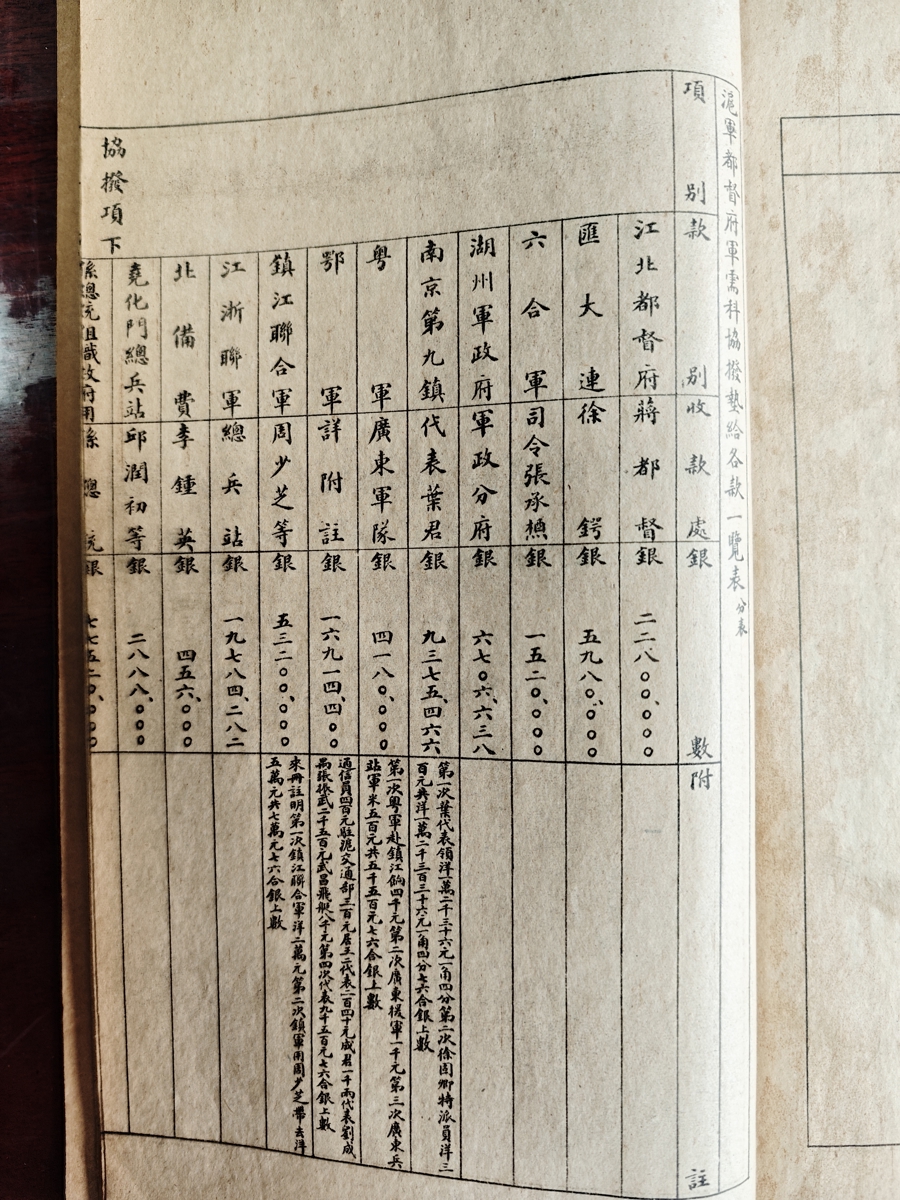 滬軍都督府軍需科協撥墊給各款一覽表 分表
項別 款別 收款處 銀數 附註
協撥項下
江北都督府 蔣都督 銀 二二八〇〇、〇〇〇
匯大連 徐鍔 銀 五九八〇、〇〇〇
六合軍 司令張承櫆 銀 一五二〇、〇〇〇
湖州軍政府 軍政分府 銀 六七〇六、六三八
南京第九鎮 代表葉君 銀 九三七五、四六六
第一次葉代表領洋一萬二千三十六元一角四分第二次徐固卿特派員洋三
百元共洋一萬二千三百三十六元一角四分七六合銀上數
粵軍 廣東軍隊 銀 四一八〇、〇〇〇
第一次粵軍赴鎮江餉四千元第二次廣東援軍一千元第三次廣東兵
站軍米五百元共五千五百元七六合銀上數
鄂軍 詳附註 銀 一六九一四、四〇〇
通信員四百元駐滬交通部三百元居王二代表二百四十元成君一千兩代表劉成
禺張振武二千五百元武昌飛艇八千元第四次代表九千五百元七六合銀上數
鎮江聯合軍 周少芝等 銀 五三二〇〇、〇〇〇
來冊註明第一次鎮江聯合軍洋二萬元第二次鎮軍用周少芝帶去洋
五萬元共七萬元七六合銀上數
江浙聯軍 總兵站 銀 一九七八四、二八二
北備費 李鍾英 銀 四五六、〇〇〇
堯化門總兵站 邱潤初等 銀 二八八八、〇〇〇
孫總統組織政府用 孫總統 銀 七七五二〇、〇〇〇